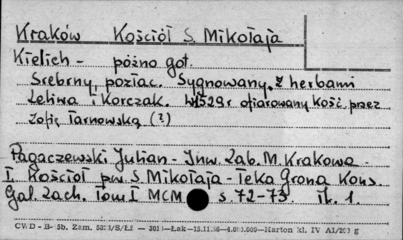 Kraków Kościół S. Mikołaja
Kielich - późno got.
Srebrny pozłac. Sygnowany z herbami
Leliwa i Korczak. W 1529 r ofiarowany Kość. przez
Zofię Tarnowską (?)
Pagaczewski Julian - Inw. Zab. M. Krakowa -
I. Kościół pw S. Mikołaja - Teka Grona Kons.
Gal. Zach. Tom I MCM s. 72-73. il. 1.
CWD - B- 5b. Zam.